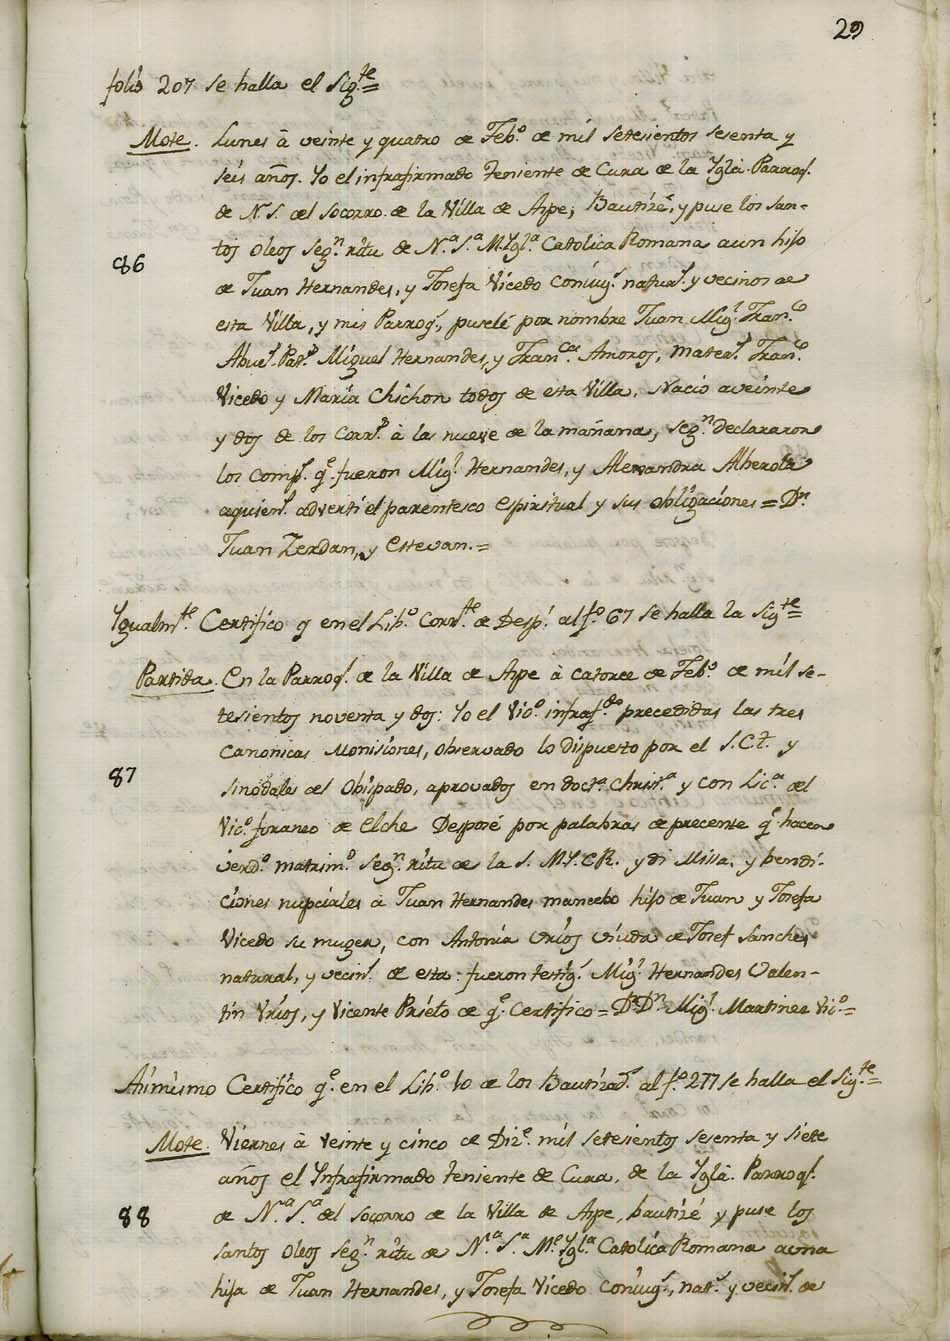 29
folio 207 se halla el Sig.te =
Mote. Lunes â veinte y quatro de Feb.o de mil setesientos sesenta y
seis años. Yo el infrafirmado Teniente de Cura de la Ygla. Parroq.l
de N.S. del Socorro de la Villa de Aspe; Bautizé, y puse los san-
tos oleos Seg.n ritu de N.a S.a M. Ygl.a Catolica Romana aun hijo
86
de Juan Hernandes, y Josefa Vicedo conjug.s natur.s y vecinos de
esta Villa, y mis Parroq.s, puselé por nombre Juan Mig.l Fran.co
Abue.s Pat.s Miguel Hernandes, y Fran.ca Amoros, Mater.s Fran.co
Vicedo y Maria Chichon todos de esta Villa. Nació aveinte
y dos de los Corr.s â las nueve de la mañana, Seg.n declararon
los Comp.s q.e fueron Mig.l Hernandes, y Alexandra Alberola
aquien.s advertí el parentesco espiritual y sus obligaciones = D.n
Juan Zerdan, y Estevan. =
Ygualm.te Certifico q en el Lib.o Corr.te de Desp.s al f.o 67 se halla la Sig.te =
Partida. En la Parroq.l de la Villa de Aspe â catorce de Feb.o de mil se-
tesientos noventa y dos: Yo el Vic.o infraf.do precedidas las tres
Canonicas Monisiones, observado lo dispuesto por el S.C.T. y
87
Sinodales del Obispado, aprovados en doct.a Christ.a y con Lic.a del
Vic.o foraneo de Elche Desposé por palabras de precente q.e hacen
verd.o matrim.o Seg.n ritu de la S. M.Y.C.R. y di Missa, y bendi-
ciones nupciales â Juan Hernandes mancebo hijo de Juan y Josefa
Vicedo su muger, con Antonia Urios viuda de Josef Sanches
natural, y vecin.s de esta: fueron testig.s Mig.l Hernandes Valen-
tin Urios, y Vicente Prieto de q.e Certifico = D.r D.n Mig.l Martinez Vic.o =
Asimismo Certifico q.e en el Lib.o 10 de los Bautizad.s al f.o 277 se halla el Sig.te =
Mote. Viernes â veinte y cinco de Diz.e mil setesientos sesenta y siete
años el Ynfrafirmado Teniente de Cura, de la Ygla. Parroq.l
88
de N.a S.a del Socorro de la Villa de Aspe, bautizé y puse los
santos oleos Seg.n ritu de N.a S.a M.e Ygl.a Catolica Romana auna
hija de Juan Hernandes, y Josefa Vicedo conjug.s, nat.s y vecin.s de